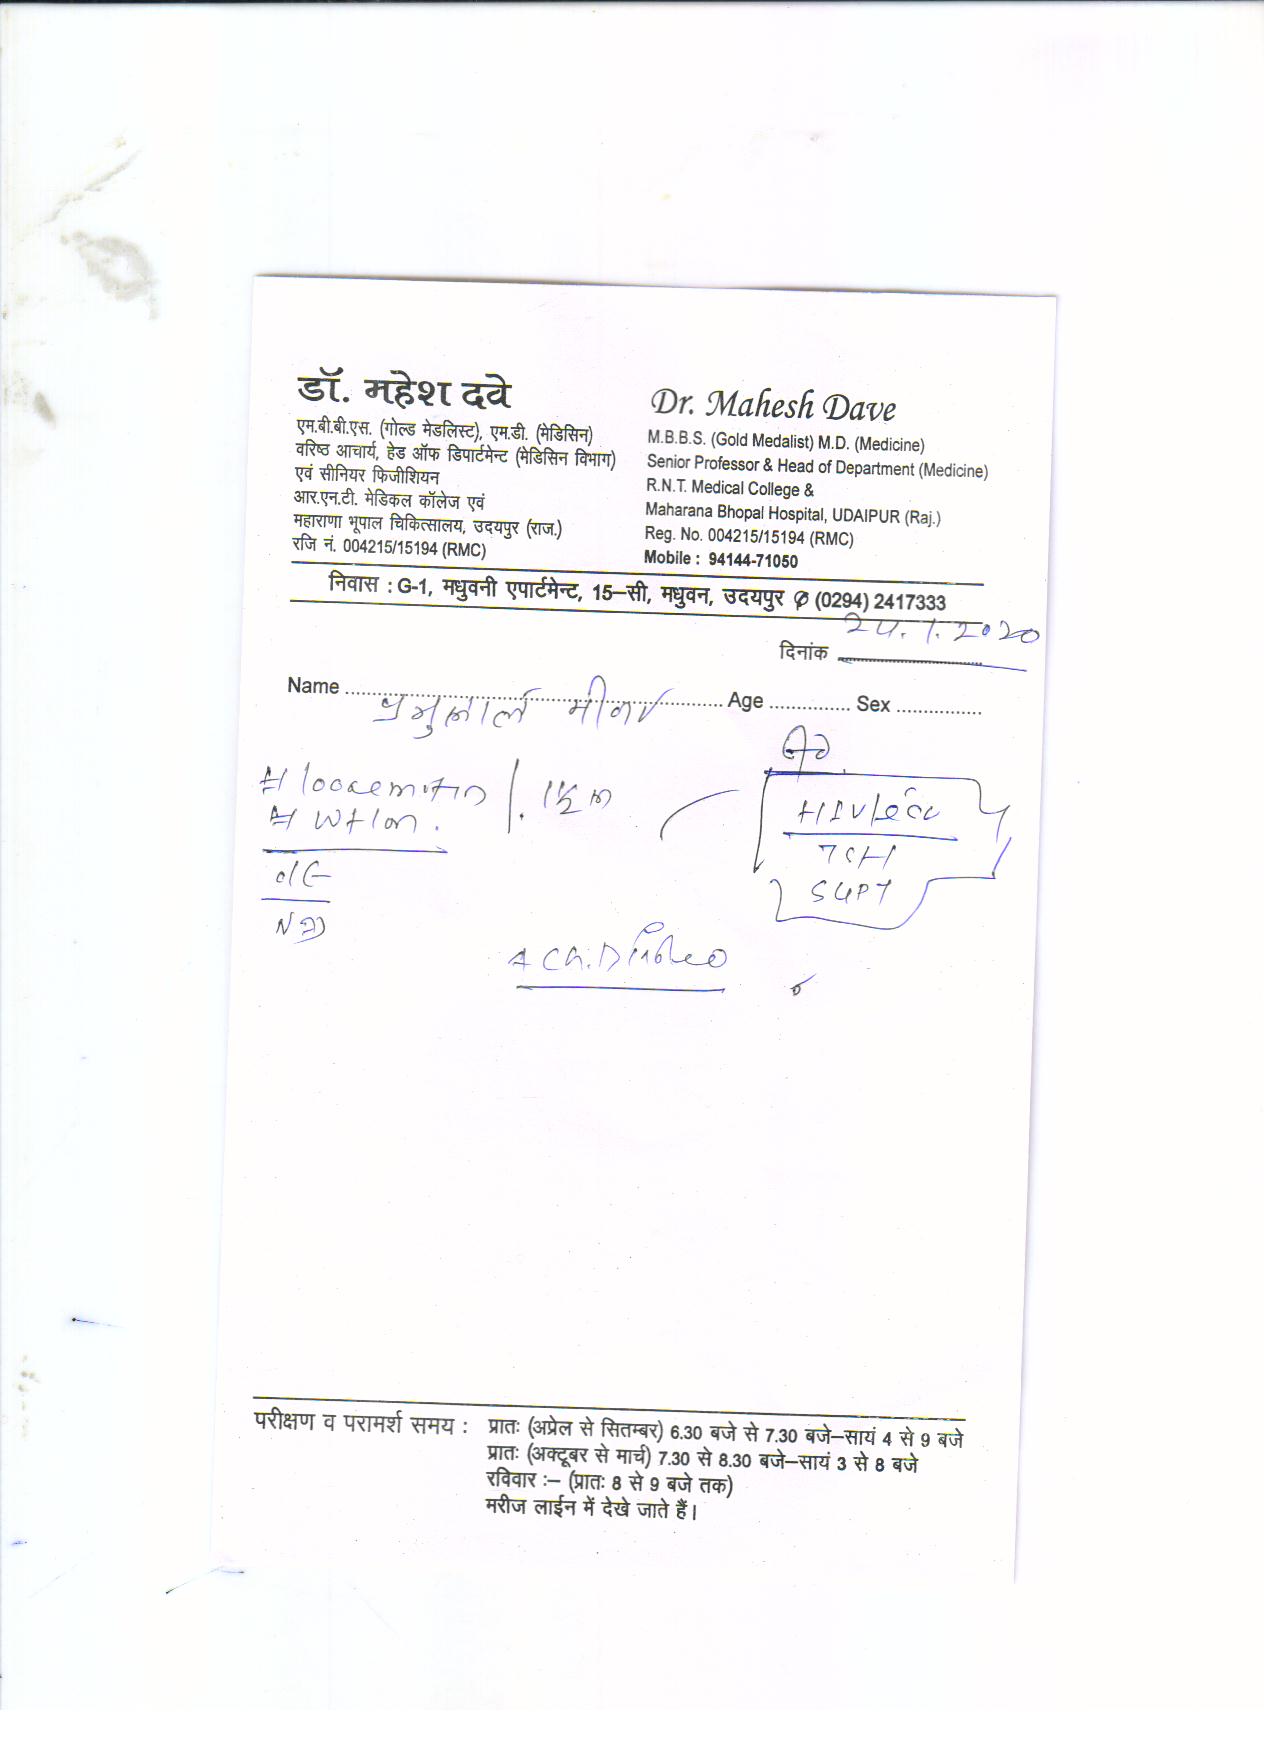 डॉ. महेश दवे
एम.बी.बी.एस. (गोल्ड मेडलिस्ट), एम.डी. (मेडिसिन)
वरिष्ठ आचार्य, हेड ऑफ डिपार्टमेन्ट (मेडिसिन विभाग)
एवं सीनियर फिजीशियन
आर.एन.टी. मेडिकल कॉलेज एवं
महाराणा भूपाल चिकित्सालय, उदयपुर (राज.)
रजि नं. 004215/15194 (RMC)
Dr. Mahesh Dave
M.B.B.S. (Gold Medalist) M.D. (Medicine)
Senior Professor & Head of Department (Medicine)
R.N.T. Medical College &
Maharana Bhopal Hospital, UDAIPUR (Raj.)
Reg. No. 004215/15194 (RMC)
Mobile : 94144-71050
निवास : G-1, मधुवनी एपार्टमेन्ट, 15–सी, मधुवन, उदयपुर ✆ (0294) 2417333
दिनांक
Name ........ Age ........ Sex ........
मीणा
SGPT
परीक्षण व परामर्श समय : प्रातः (अप्रेल से सितम्बर) 6.30 बजे से 7.30 बजे–सायं 4 से 9 बजे
प्रातः (अक्टूबर से मार्च) 7.30 से 8.30 बजे–सायं 3 से 8 बजे
रविवार :– (प्रातः 8 से 9 बजे तक)
मरीज लाईन में देखे जाते हैं।